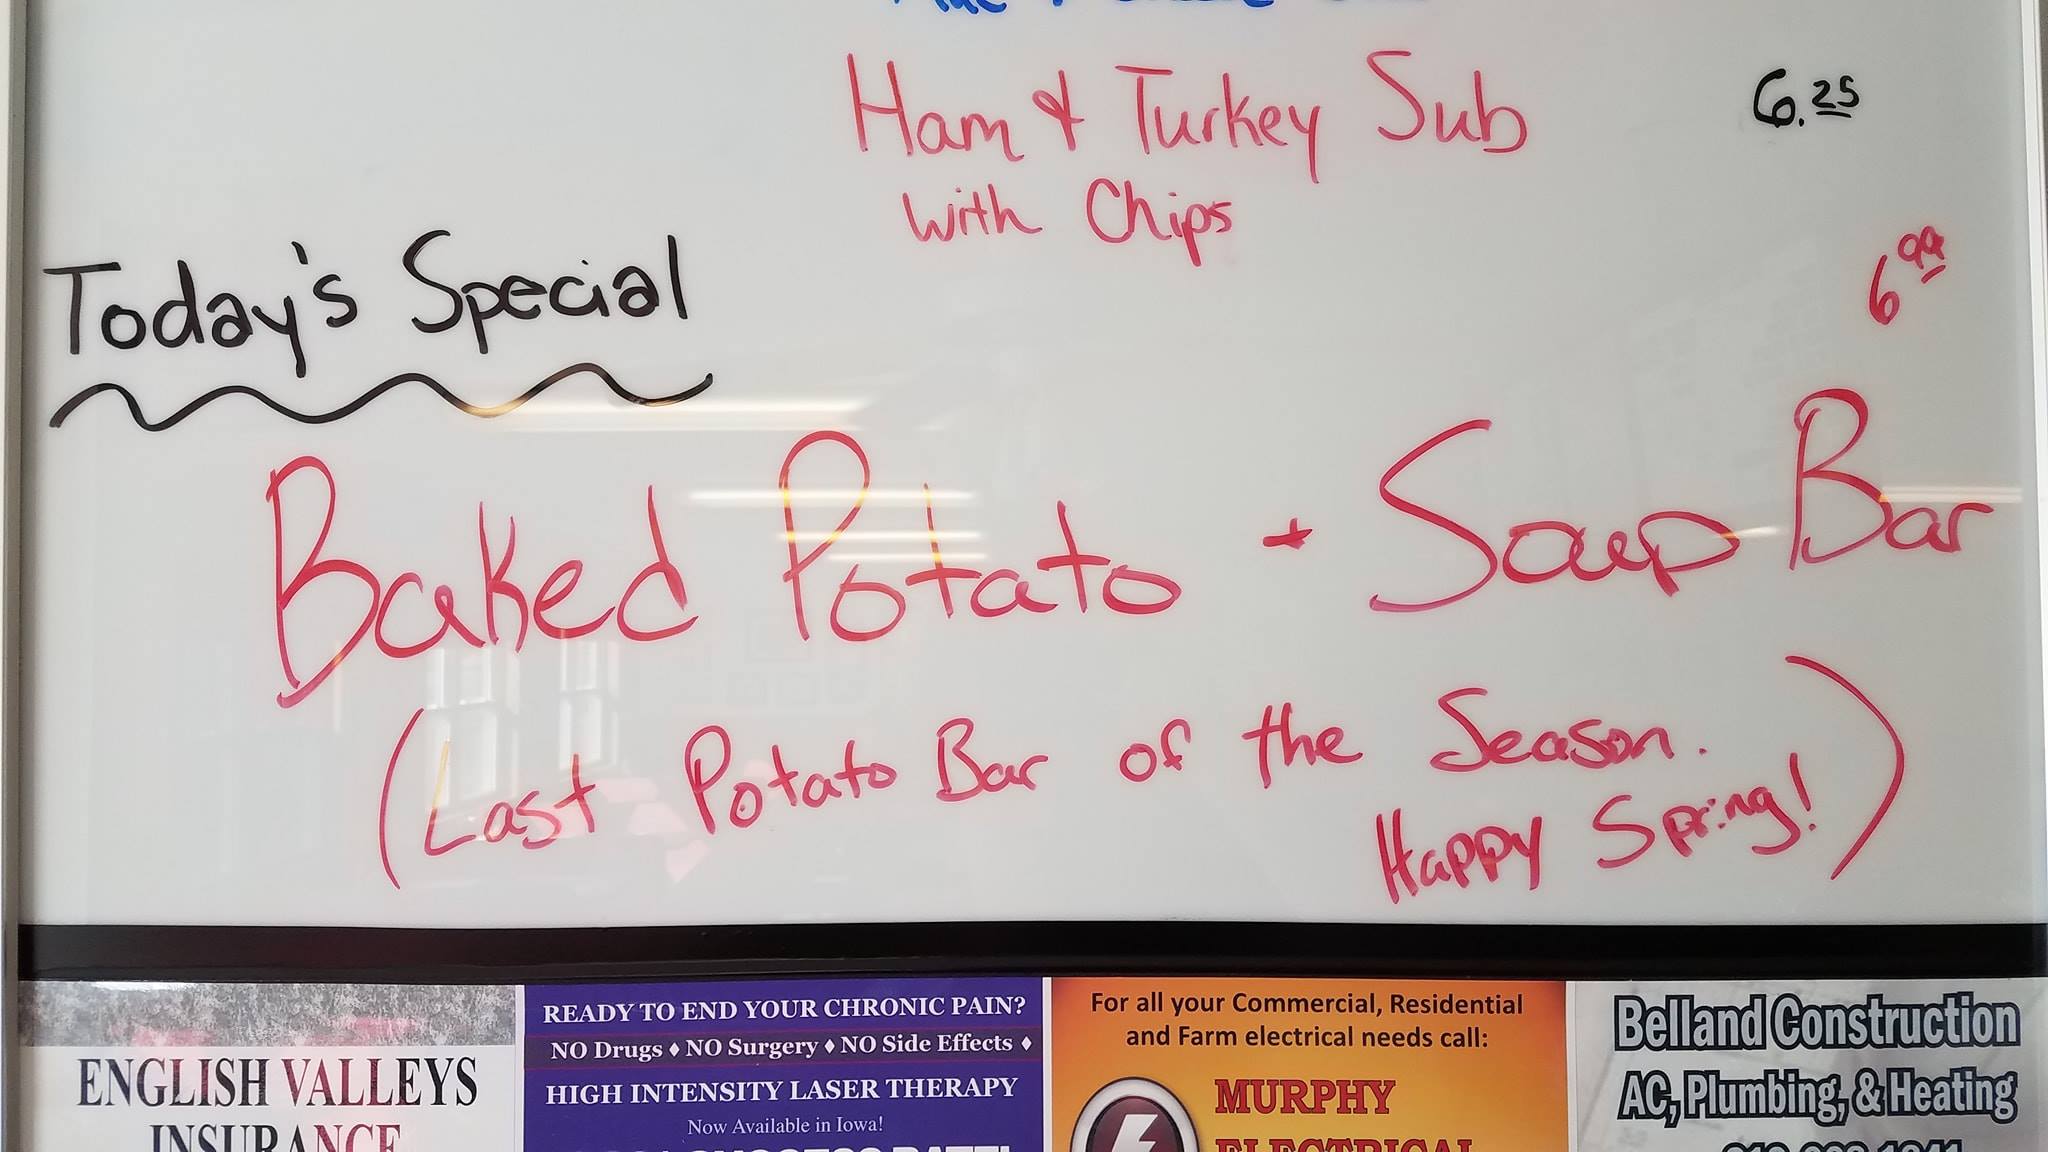 Ham & Turkey Sub 6.25
with Chips
6 99
Today's Special
Baked Potato + Soup Bar
(Last Potato Bar of the Season.
Happy Spring!)
ENGLISH VALLEYS
INSURANCE
READY TO END YOUR CHRONIC PAIN?
NO Drugs ♦ NO Surgery ♦ NO Side Effects ♦
HIGH INTENSITY LASER THERAPY
Now Available in Iowa!
For all your Commercial, Residential
and Farm electrical needs call:
MURPHY
ELECTRICAL
Belland Construction
AC, Plumbing, & Heating